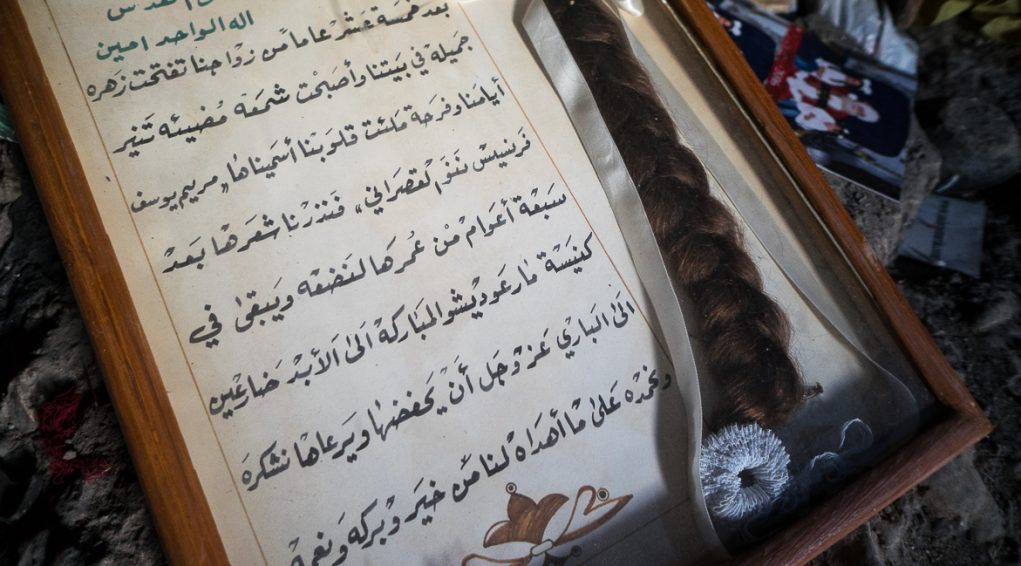 القدس
اله الواحد امين
بعد خمسة عشر عاما من زواجنا تفتحت زهره
جميله في بيتنا وأصبحت شمعة مضيئه تنير
أيامنا وفرحة ملئت قلوبنا أسميناها "مريم يوسف
فرنسيس ننو القصراني" فنذرنا شعرها بعد
سبعة أعوام من عمرها لنضعه ويبقى في
كنيسة مارعوديشو المباركة الى الأبد ضارعين
الى الباري عز وجل أن يحفضها ويرعاها نشكره
ونحمده على ما أهداه لنا من خير وبركه ونعمة